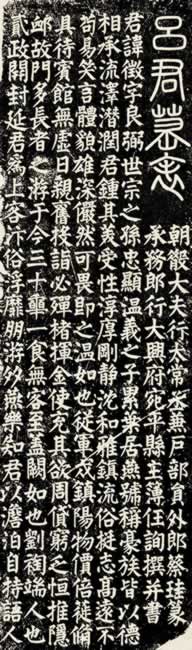 呂君墓表
朝散大夫行太常丞兼戶部員外郎蔡珪篆
承務郎行大興府宛平縣主簿任詢撰并書
君諱徵字良弼世宗之孫忠顯溫義之子累葉居燕號稱豪族皆以德
相承流澤潛潤君鍾其美受性淳厚剛靜沈和雅鎮流俗挺志髙遠不
苟易笑言體貌雄深儼然可畏即之溫如也從軍戍鎮陽物價倍徙備
具待賓館無虛日親舊投詣必彈楮揮金使充其欲周貸窮乏恒推隱
卹故門多長者之游于今三十一食無客至蓋闕如也劉徇端人也
貳政開封延君爲上客汴俗浮靡朋游以燕樂知君以澹泊自持語人